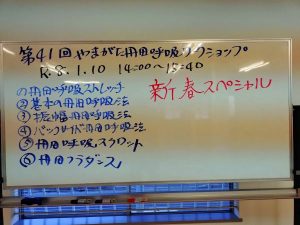 第41回やまがた丹田呼吸ワークショップ
R.8.1.10 14:00〜15:40
新春スペシャル
①丹田呼吸ストレッチ
②基本の丹田呼吸法
③振幅丹田呼吸法
④バックサイド丹田呼吸法
⑤丹田呼吸スクワット
⑥丹田フラダンス